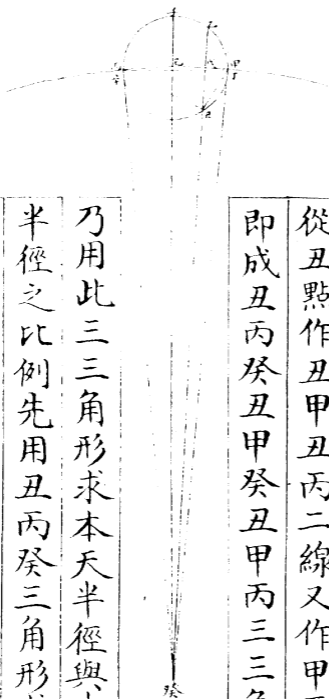 從丑點作丑甲丑丙二線又作甲
即成丑丙癸丑甲癸丑甲丙三三
乃用此三三角形求本天半徑與
半徑之比例先用丑丙癸三角形
癸